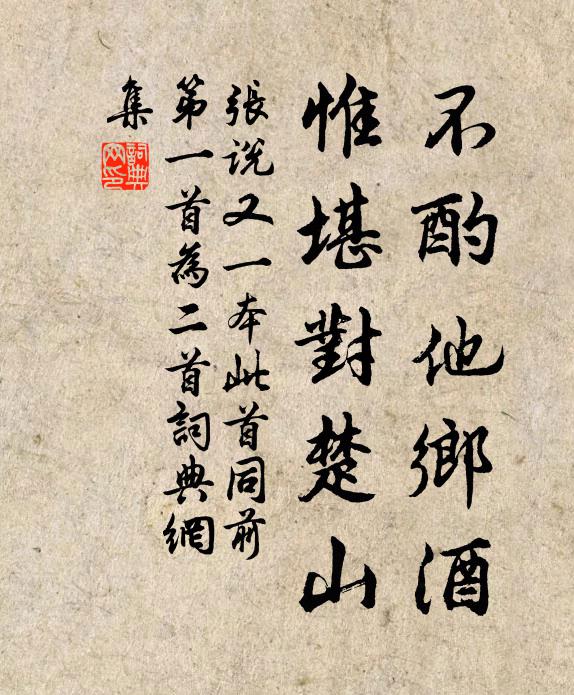 不酌他鄉酒
惟堪對楚山
張說又一本此首同前
第一首為二首詞典網
集
詞典網印